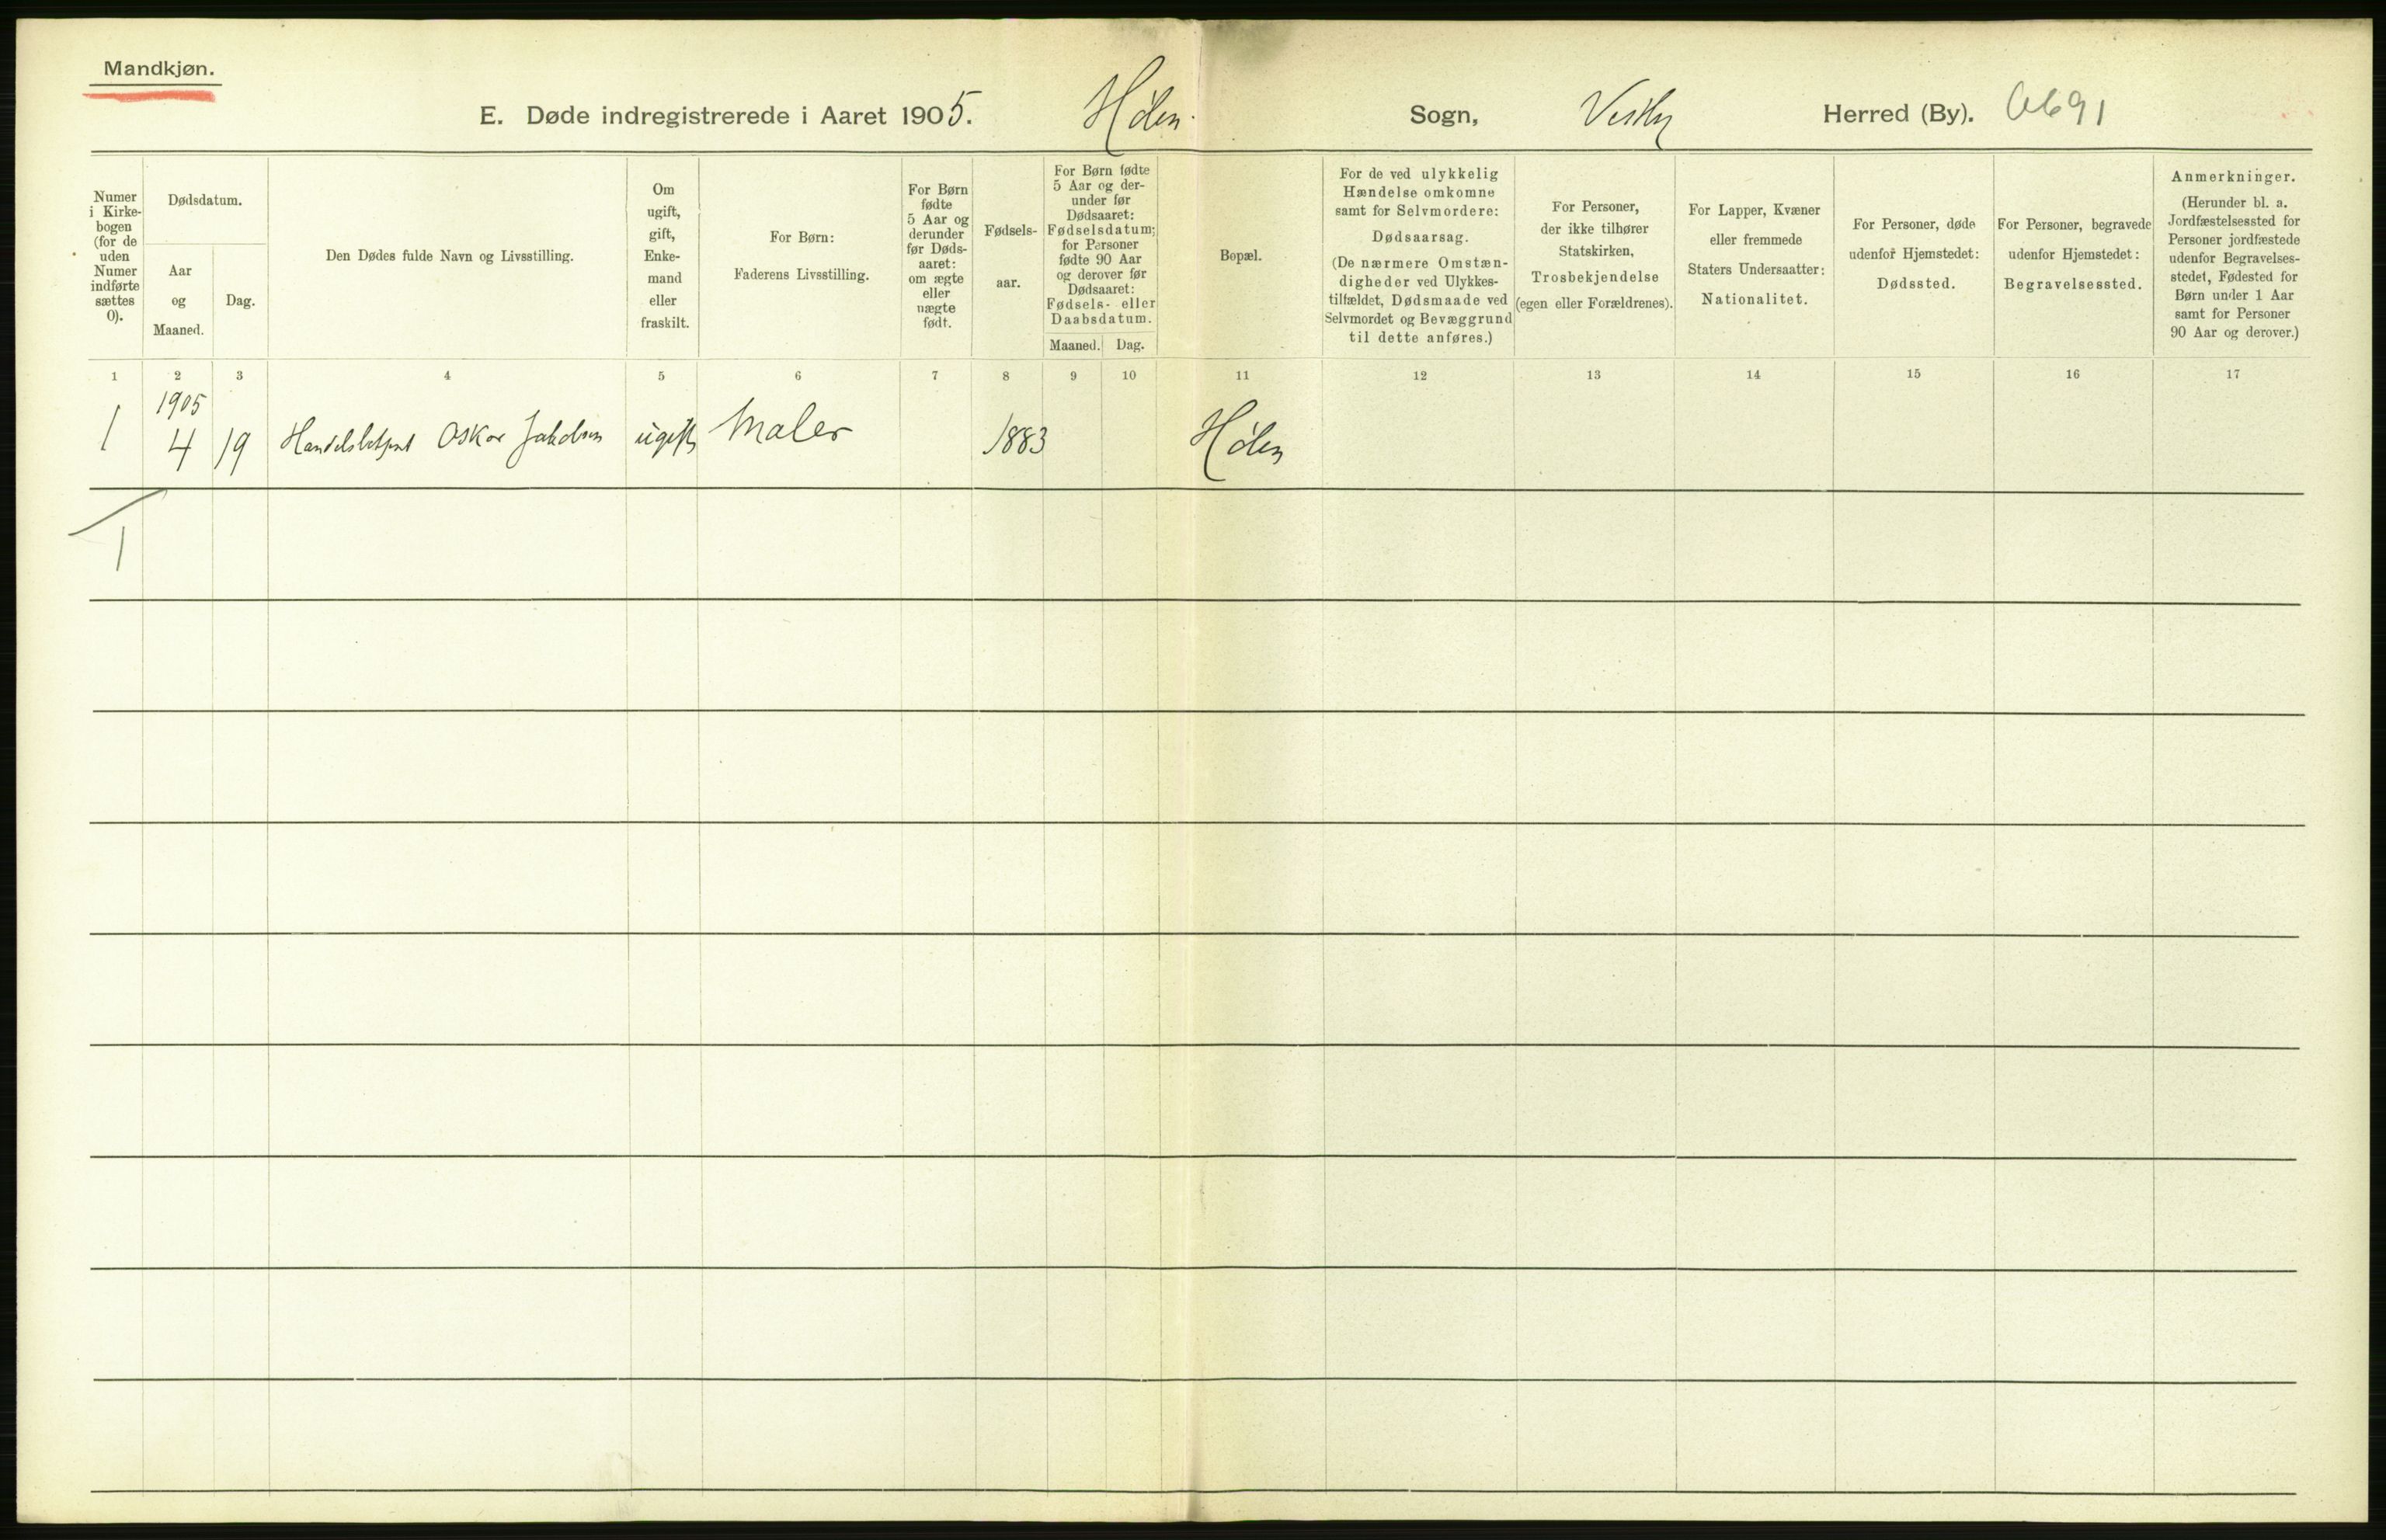 Mandkjøn.
E. Døde indregistrerede i Aaret 1905. Hølen. Sogn, Vestby Herred (By). 0691
Numer
i Kirke-
bogen
(for de
uden
Numer
indførte
sættes
0).
Dødsdatum.
Aar
og
Maaned.
Dag.
Den Dødes fulde Navn og Livsstilling.
Om
ugift,
gift,
Enke-
mand
eller
fraskilt.
For Børn:
Faderens Livsstilling.
For Børn
fødte
5 Aar og
derunder
før Døds-
aaret:
om ægte
eller
nægte
født.
Fødsels-
aar.
For Børn fødte
5 Aar og der-
under før
Dødsaaret:
Fødselsdatum;
for Personer
fødte 90 Aar
og derover før
Dødsaaret:
Fødsels- eller
Daabsdatum.
Maaned. Dag.
Bopæl.
For de ved ulykkelig
Hændelse omkomne
samt for Selvmordere:
Dødsaarsag.
(De nærmere Omstæn-
digheder ved Ulykkes-
tilfældet, Dødsmaade ved
Selvmordet og Bevæggrund
til dette anføres.)
For Personer,
der ikke tilhører
Statskirken,
Trosbekjendelse
(egen eller Forældrenes).
For Lapper, Kvæner
eller fremmede
Staters Undersaatter:
Nationalitet.
For Personer, døde
udenfor Hjemstedet:
Dødssted.
For Personer, begravede
udenfor Hjemstedet:
Begravelsessted.
Anmerkninger.
(Herunder bl. a.
Jordfæstelsessted for
Personer jordfæstede
udenfor Begravelses-
stedet, Fødested for
Børn under 1 Aar
samt for Personer
90 Aar og derover.)
1 2 3 4 5 6 7 8 9 10 11 12 13 14 15 16 17
1905
1 4 19 Handelsbetjent Oskar Jakobsen ugift Maler 1883 Hølen
1